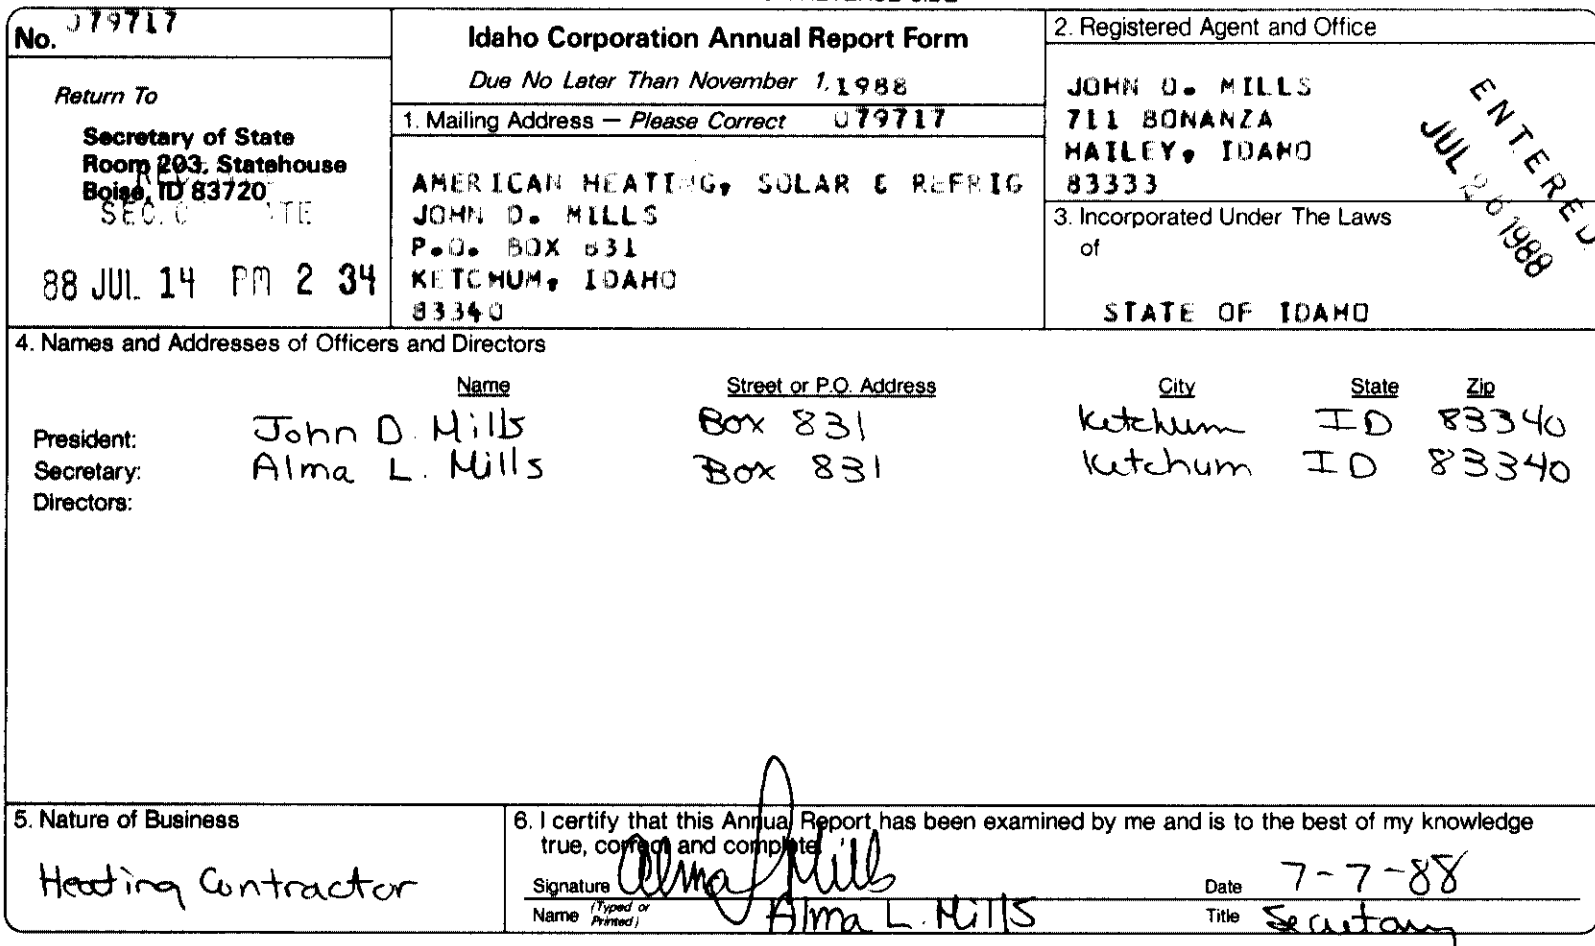 No. 079717
Idaho Corporation Annual Report Form
Due No Later Than November 1, 1988
Return To
Secretary of State
Room 203, Statehouse
Boise, ID 83720
SEC.
88 JUL 14 PM 2 34
1. Mailing Address — Please Correct 079717
AMERICAN HEATING, SOLAR & REFRIG
JOHN D. MILLS
P.O. BOX 831
KETCHUM, IDAHO
83340
2. Registered Agent and Office
JOHN D. MILLS
711 BONANZA
HAILEY, IDAHO
83333
ENTERED
JUL 26 1988
3. Incorporated Under The Laws
of
STATE OF IDAHO
4. Names and Addresses of Officers and Directors
Name Street or P.O. Address City State Zip
President: John D. Mills Box 831 Ketchum ID 83340
Secretary: Alma L. Mills Box 831 Ketchum ID 83340
Directors:
5. Nature of Business
Heating Contractor
6. I certify that this Annual Report has been examined by me and is to the best of my knowledge
true, correct and complete.
Signature Alma L Mills Date 7-7-88
Name (Typed or Printed) Alma L. Mills Title Secretary